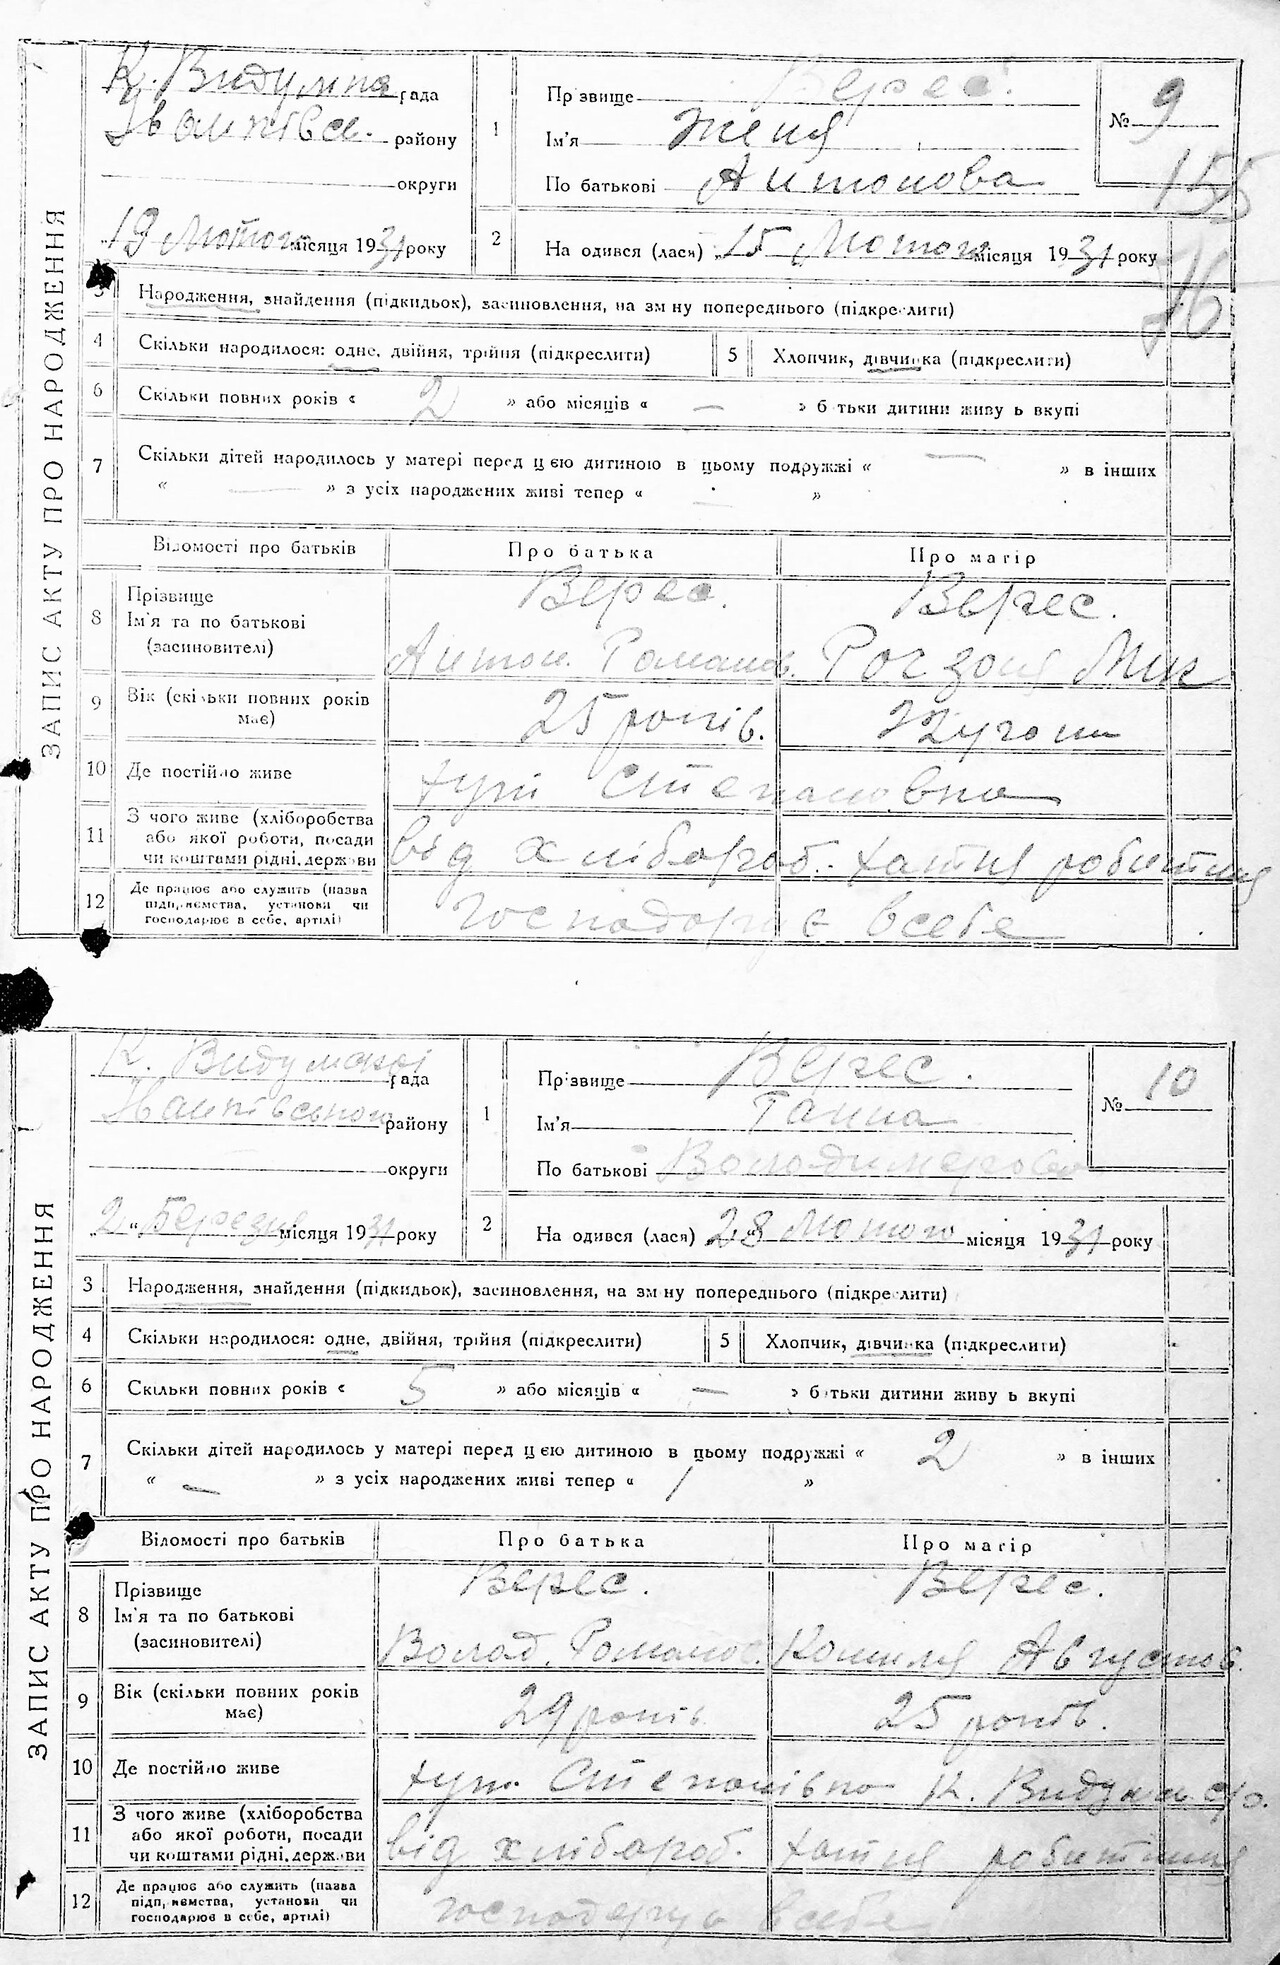 ЗАПИС АКТУ ПРО НАРОДЖЕННЯ
К. Видумка рада
району
округи
19 Лютого місяця 1931 року
1
Прізвище Верес.
Ім'я Женя
По батькові Антонова
№ 9
155
76
2
На одився (лася) 15 Лютого місяця 1931 року
3
Народження, знайдення (підкидьок), засиновлення, на зм ну попереднього (підкреслити)
4
Скільки народилося: одне, двійня, трійня (підкреслити)
5
Хлопчик, дівчинка (підкреслити)
6
Скільки повних років « 2 » або місяців « — » б тьки дитини живу ь вкупі
7
Скільки дітей народилось у матері перед цією дитиною в цьому подружжі « — » в інших
« — » з усіх народжених живі тепер « — »
Відомості про батьків
Про батька
Про матір
8
Прізвище
Ім'я та по батькові
(засиновителі)
Верес.
Антон. Романов.
Верес.
9
Вік (скільки повних років
має)
25 років.
10
Де постійно живе
тут Степановка
11
З чого живе (хліборобства
або якої роботи, посади
чи коштами рідні, держави
від хлібороб.
12
Де працює або служить (назва
підприємства, установи чи
господарює в себе, артілі)
господорує всебе
ЗАПИС АКТУ ПРО НАРОДЖЕННЯ
К. Видумской рада
району
округи
2 Березня місяця 1931 року
1
Прізвище Верес.
Ім'я Ганна
По батькові Володимерова
№ 10
2
На одився (лася) 28 Лютого місяця 1931 року
3
Народження, знайдення (підкидьок), засиновлення, на зм ну попереднього (підкреслити)
4
Скільки народилося: одне, двійня, трійня (підкреслити)
5
Хлопчик, дівчинка (підкреслити)
6
Скільки повних років « 5 » або місяців « — » б тьки дитини живу ь вкупі
7
Скільки дітей народилось у матері перед цією дитиною в цьому подружжі « 2 » в інших
« — » з усіх народжених живі тепер « 1 »
Відомості про батьків
Про батька
Про матір
8
Прізвище
Ім'я та по батькові
(засиновителі)
Верес.
Волод. Романов.
Верес.
Августов.
9
Вік (скільки повних років
має)
29 років
25 років.
10
Де постійно живе
тут. Степанівка К.
11
З чого живе (хліборобства
або якої роботи, посади
чи коштами рідні, держави
від хлібороб.
12
Де працює або служить (назва
підприємства, установи чи
господарює в себе, артілі)
господорує всебе